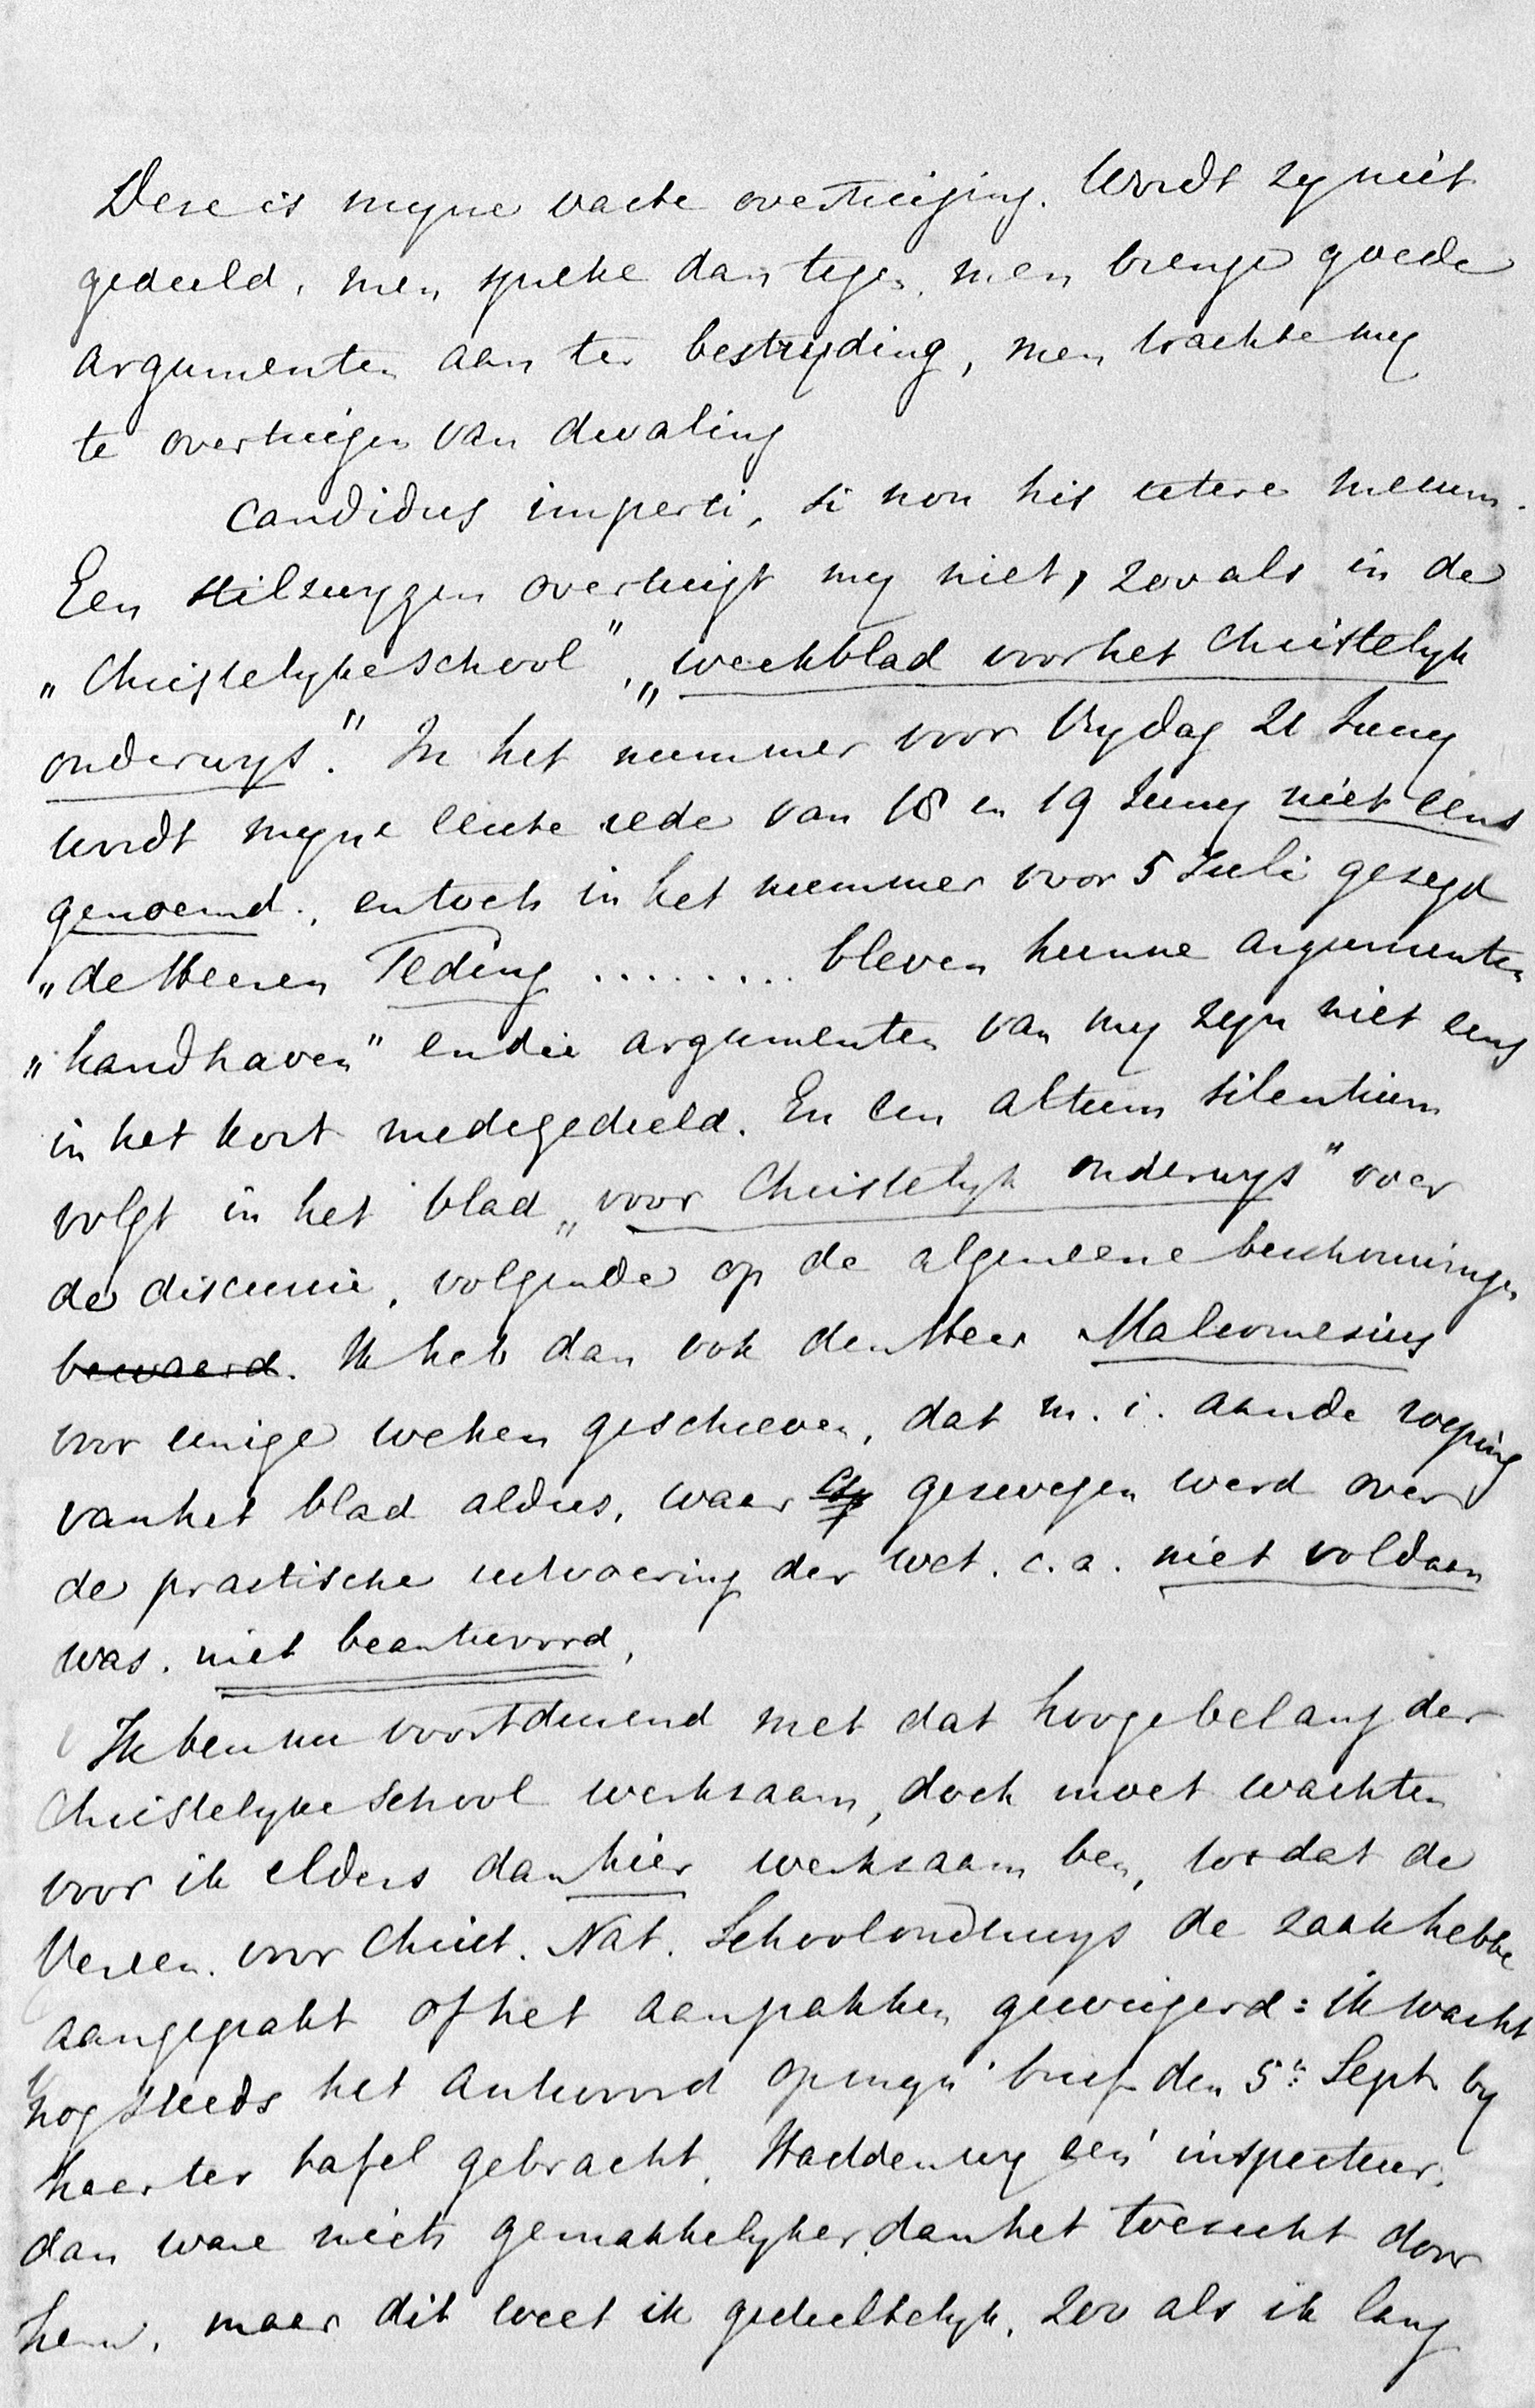 Deze is myne vaste overtuiging. Wordt zy niet
gedeeld, men spreke dan tegen, men brenge goede
argumenten aan ter bestryding, men trachte my
te overtuigen van dwaling
Candidus imperti, si non his utere mecum.
Een stilzwygen overtuigt my niet, zooals in de
„Christelyke school", „weekblad voor het Christelyk
onderwys." In het nummer voor Vrydag 21 Juny
wordt myne eerste rede van 18 en 19 Juny niet eens
genoemd, en toch in het nummer voor 5 Juli gezegd
„de Heeren Teding ........ bleven hunne argumenten
„handhaven" en die argumenten van my zyn niet eens
in het kort medegedeeld. En een altum silentium
volgt in het blad „voor Christelyk onderwys" over
de discussie, volgende op de algemeene beschouwingen
bewaard. Ik heb dan ook den Heer Malcomesius
voor eenige weken geschreven, dat m. i. aan de roeping
van het blad aldus, waar gezwegen werd over
de practische uitvoering der wet. c. a. niet voldaan
was, niet beantwoord,
Ik ben nu voortdurend met dat hooge belang der
Christelyke School werkzaam, doch moet wachten
voor ik elders dan hier werkzaam ben, totdat de
Vereen. voor Christ. Nat. Schoolonderwys de zaak hebbe
aangepakt of het aanpakken geweigerd: ik wacht
nog steeds het antwoord op myn brief den 5n Sept. by
haar ter tafel gebracht. Hadden wy één inspecteur,
dan ware niets gemakkelyker dan het toezicht door
hem, maar dit weet ik gedeeltelyk, zoo als ik lang